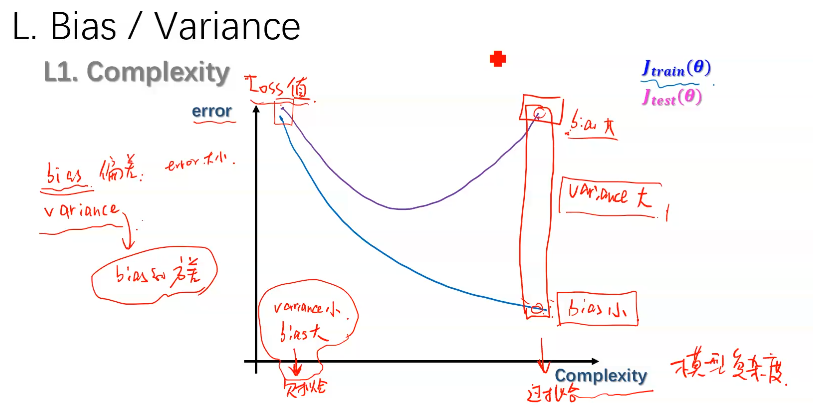 L. Bias / Variance
L1. Complexity
Loss值
error
J train(θ)
J test(θ)
bias 偏差: error大小.
variance
bias的方差
bias大
variance大
bias小
variance小
bias大
欠拟合
过拟合
Complexity
模型复杂度